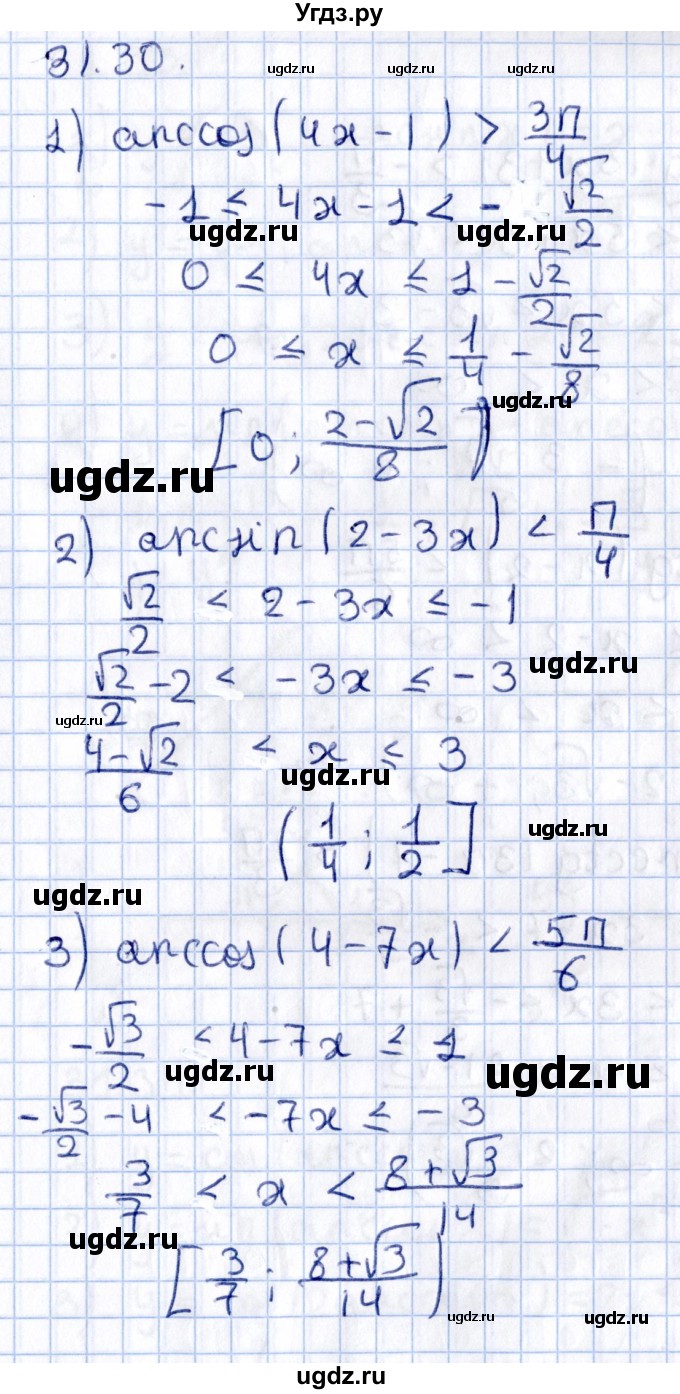 Угдз.ру
31.30.
ugdz.ru ugdz.ru
1) arccos(4x-1) > 3π/4
-1 ≤ 4x-1 < - √2/2
ugdz.ru ugdz.ru
0 ≤ 4x ≤ 1 - √2/2
0 ≤ x ≤ 1/4 - √2/8
ugdz.ru
[0; (2-√2)/8)
ugdz.ru
2) arcsin(2-3x) < π/4
√2/2 < 2-3x ≤ -1
ugdz.ru
√2/2 - 2 < -3x ≤ -3
ugdz.ru
(4-√2)/6 < x ≤ 3
ugdz.ru
(1/4; 1/2]
ugdz.ru
ugdz.ru
3) arccos(4-7x) < 5π/6
-√3/2 < 4-7x ≤ 1
ugdz.ru ugdz.ru
-√3/2 - 4 < -7x ≤ -3
3/7 < x < (8+√3)/14
ugdz.ru
[3/7; (8+√3)/14)
ugdz.ru
ugdz.ru
ugdz.ru